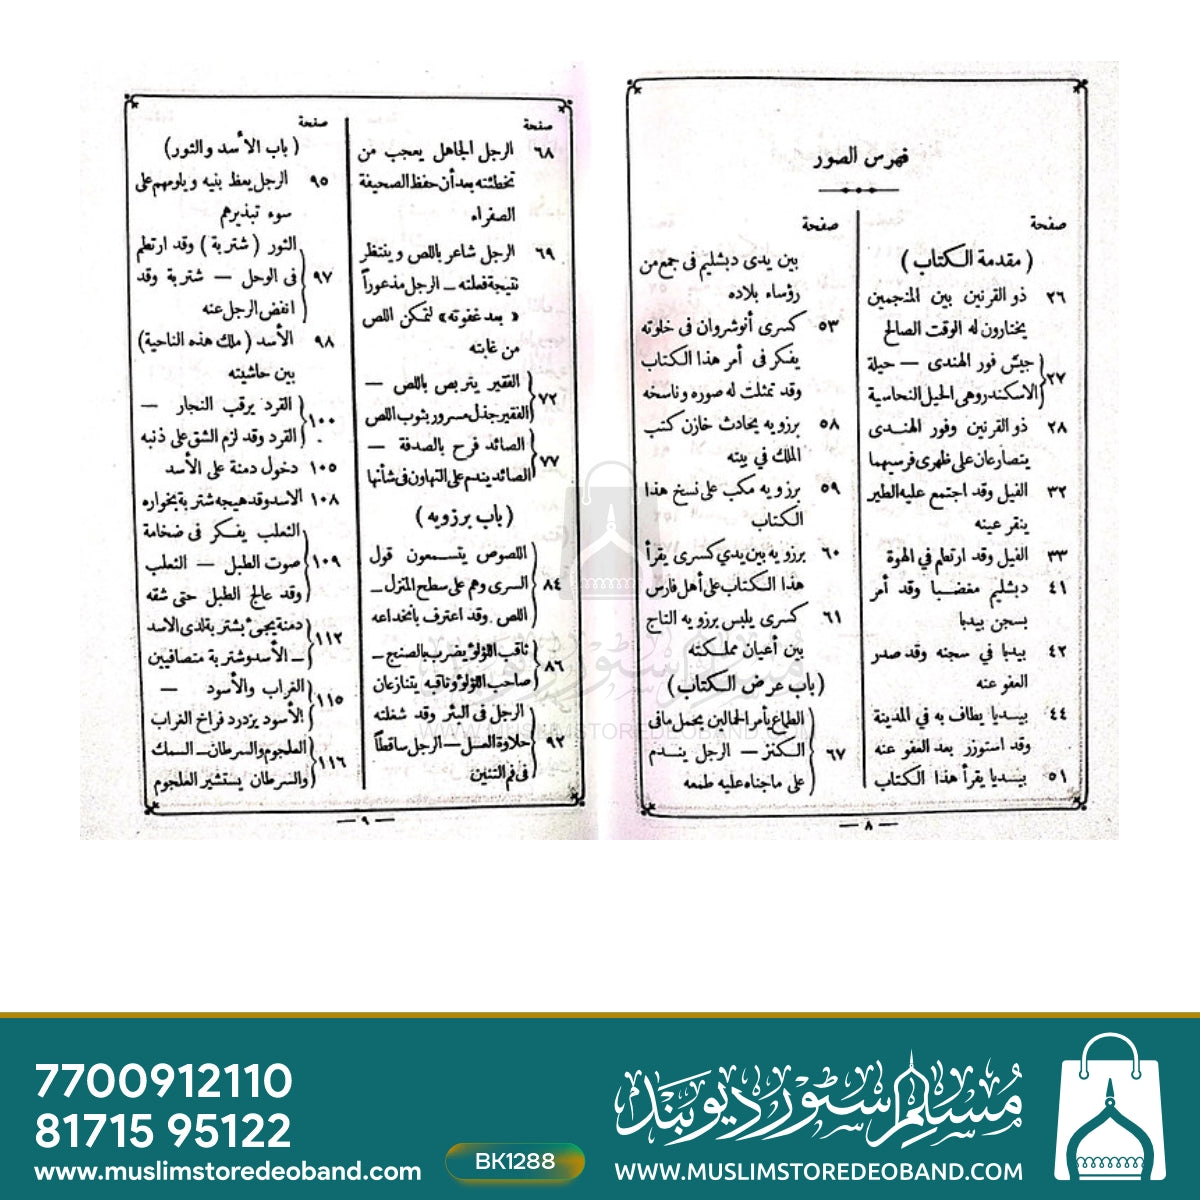 فهرس الصور
صفحة
(مقدمة الكتاب)
٢٦ ذو القرنين بين المنجمين
يختارون له الوقت الصالح
٢٧ جيش فور الهندى — حيلة
الاسكندر وهى الخيل النحاسية
٢٨ ذو القرنين وفور الهندى
يتصارعان على ظهرى فرسيهما
٣٢ الفيل وقد اجتمع عليه الطير
ينقر عينه
٣٣ الفيل وقد ارتطم في الهوة
٤١ دبشليم مغضبا وقد أمر
بسجن بيدبا
٤٢ بيدبا في سجنه وقد صدر
العفو عنه
٤٤ بيدبا يطاف به في المدينة
وقد استوزر بعد العفو عنه
٥١ بيدبا يقرأ هذا الكتاب
صفحة
بين يدى دبشليم فى جمع من
رؤساء بلاده
٥٣ كسرى أنوشروان فى خلوته
يفكر فى أمر هذا الكتاب
وقد تمثلت له صوره وناسخه
٥٨ برزويه يحادث خازن كتب
الملك في بيته
٥٩ برزويه مكب على نسخ هذا
الكتاب
٦٠ برزويه بين يدي كسرى يقرأ
هذا الكتاب على أهل فارس
٦١ كسرى يلبس برزويه التاج
بين أعيان مملكته
(باب عرض الكتاب)
٦٧ الطماع يأمر الحمالين يحمل مافى
الكنز — الرجل يندم
على ماجناه عليه طمعه
— ٨ —
صفحة
٦٨ الرجل الجاهل يعجب من
تخطئته بعد أن حفظ الصحيفة
الصفراء
٦٩ الرجل شاعر باللص وينتظر
نتيجة فعلته — الرجل مذعوراً
«بعد غفوته» لتمكن اللص
من غايته
٧٢ الفقير يتربص باللص —
الفقير جذل مسرور بثوب اللص
٧٧ الصائد فرح بالصدفة —
الصائد يندم على التهاون فى شأنها
(باب برزويه)
٨٤ اللصوص يتسمعون قول
السرى وهم على سطح المنزل —
اللص وقد اعترف بانخداعه
٨٦ ثاقب اللؤلؤ يضرب بالصنج —
صاحب اللؤلؤ وثاقبه يتنازعان
٩٢ الرجل فى البئر وقد شغلته
حلاوة العسل — الرجل ساقطاً
فى فم التنين
صفحة
(باب الأسد والثور)
٩٥ الرجل يعظ بنيه ويلومهم على
سوء تبذيرهم
٩٧ الثور (شتربة) وقد ارتطم
فى الوحل — شتربة وقد
انفض الرجل عنه
٩٨ الأسد (ملك هذه الناحية)
بين حاشيته
١٠٠ القرد يرقب النجار —
القرد وقد لزم الشق على ذنبه
١٠٥ دخول دمنة على الأسد
١٠٨ الاسد وقد هيجه شتربة بخواره
١٠٩ الثعلب يفكر فى ضخامة
صوت الطبل — الثعلب
وقد عالج الطبل حتى شقه
١١٢ دمنة يجئ بشتربة لدى الاسد
— الأسد وشتربة متصافيين
١١٥ الغراب والأسود —
الأسود يزدرد فراخ الغراب
١١٦ العلجوم والسرطان — السمك
والسرطان يستشير العلجوم
— ٩ —
مسلم سٹور دیوبند
WWW.MUSLIMSTOREDEOBAND.COM
7700912110
81715 95122
www.muslimstoredeoband.com
BK1288
مسلم سٹور دیوبند
WWW.MUSLIMSTOREDEOBAND.COM